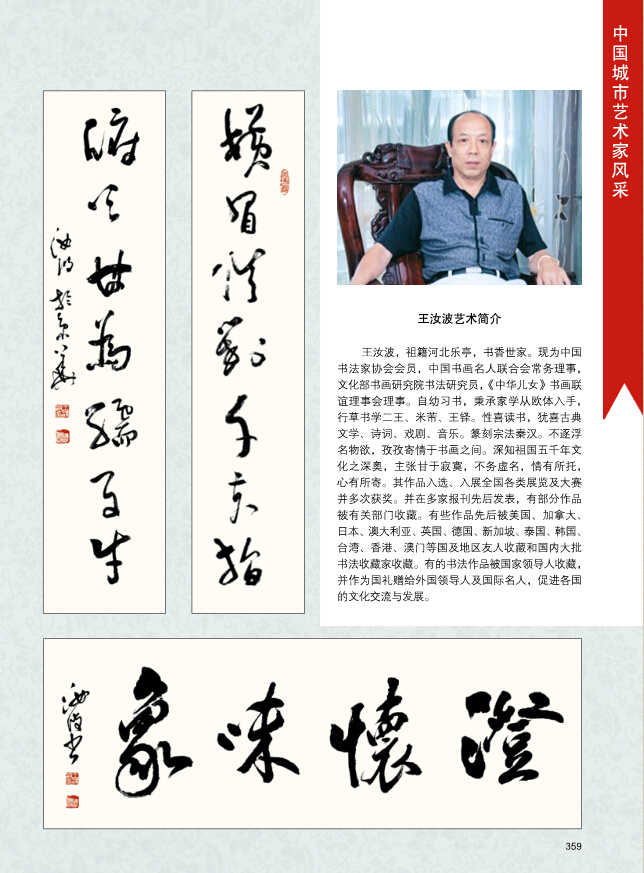 中国城市艺术家风采
橫眉冷對千夫指
俯首甘為孺子牛
汝波於京華
王汝波艺术简介
王汝波，祖籍河北乐亭，书香世家。现为中国
书法家协会会员，中国书画名人联合会常务理事，
文化部书画研究院书法研究员，《中华儿女》书画联
谊理事会理事。自幼习书，秉承家学从欧体入手，
行草书学二王、米芾、王铎。性喜读书，犹喜古典
文学、诗词、戏剧、音乐。篆刻宗法秦汉。不逐浮
名物欲，孜孜寄情于书画之间。深知祖国五千年文
化之深奥，主张甘于寂寞，不务虚名，情有所托，
心有所寄。其作品入选、入展全国各类展览及大赛
并多次获奖。并在多家报刊先后发表，有部分作品
被有关部门收藏。有些作品先后被美国、加拿大、
日本、澳大利亚、英国、德国、新加坡、泰国、韩国、
台湾、香港、澳门等国及地区友人收藏和国内大批
书法收藏家收藏。有的书法作品被国家领导人收藏，
并作为国礼赠给外国领导人及国际名人，促进各国
的文化交流与发展。
澄懷味象
汝波书
359